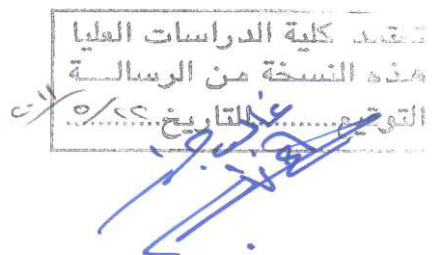 تعتمد كلية الدراسات العليا
هذه النسخة من الرسالـــة
التوقيع.........التاريخ ٢٢/٥/٢٠١١